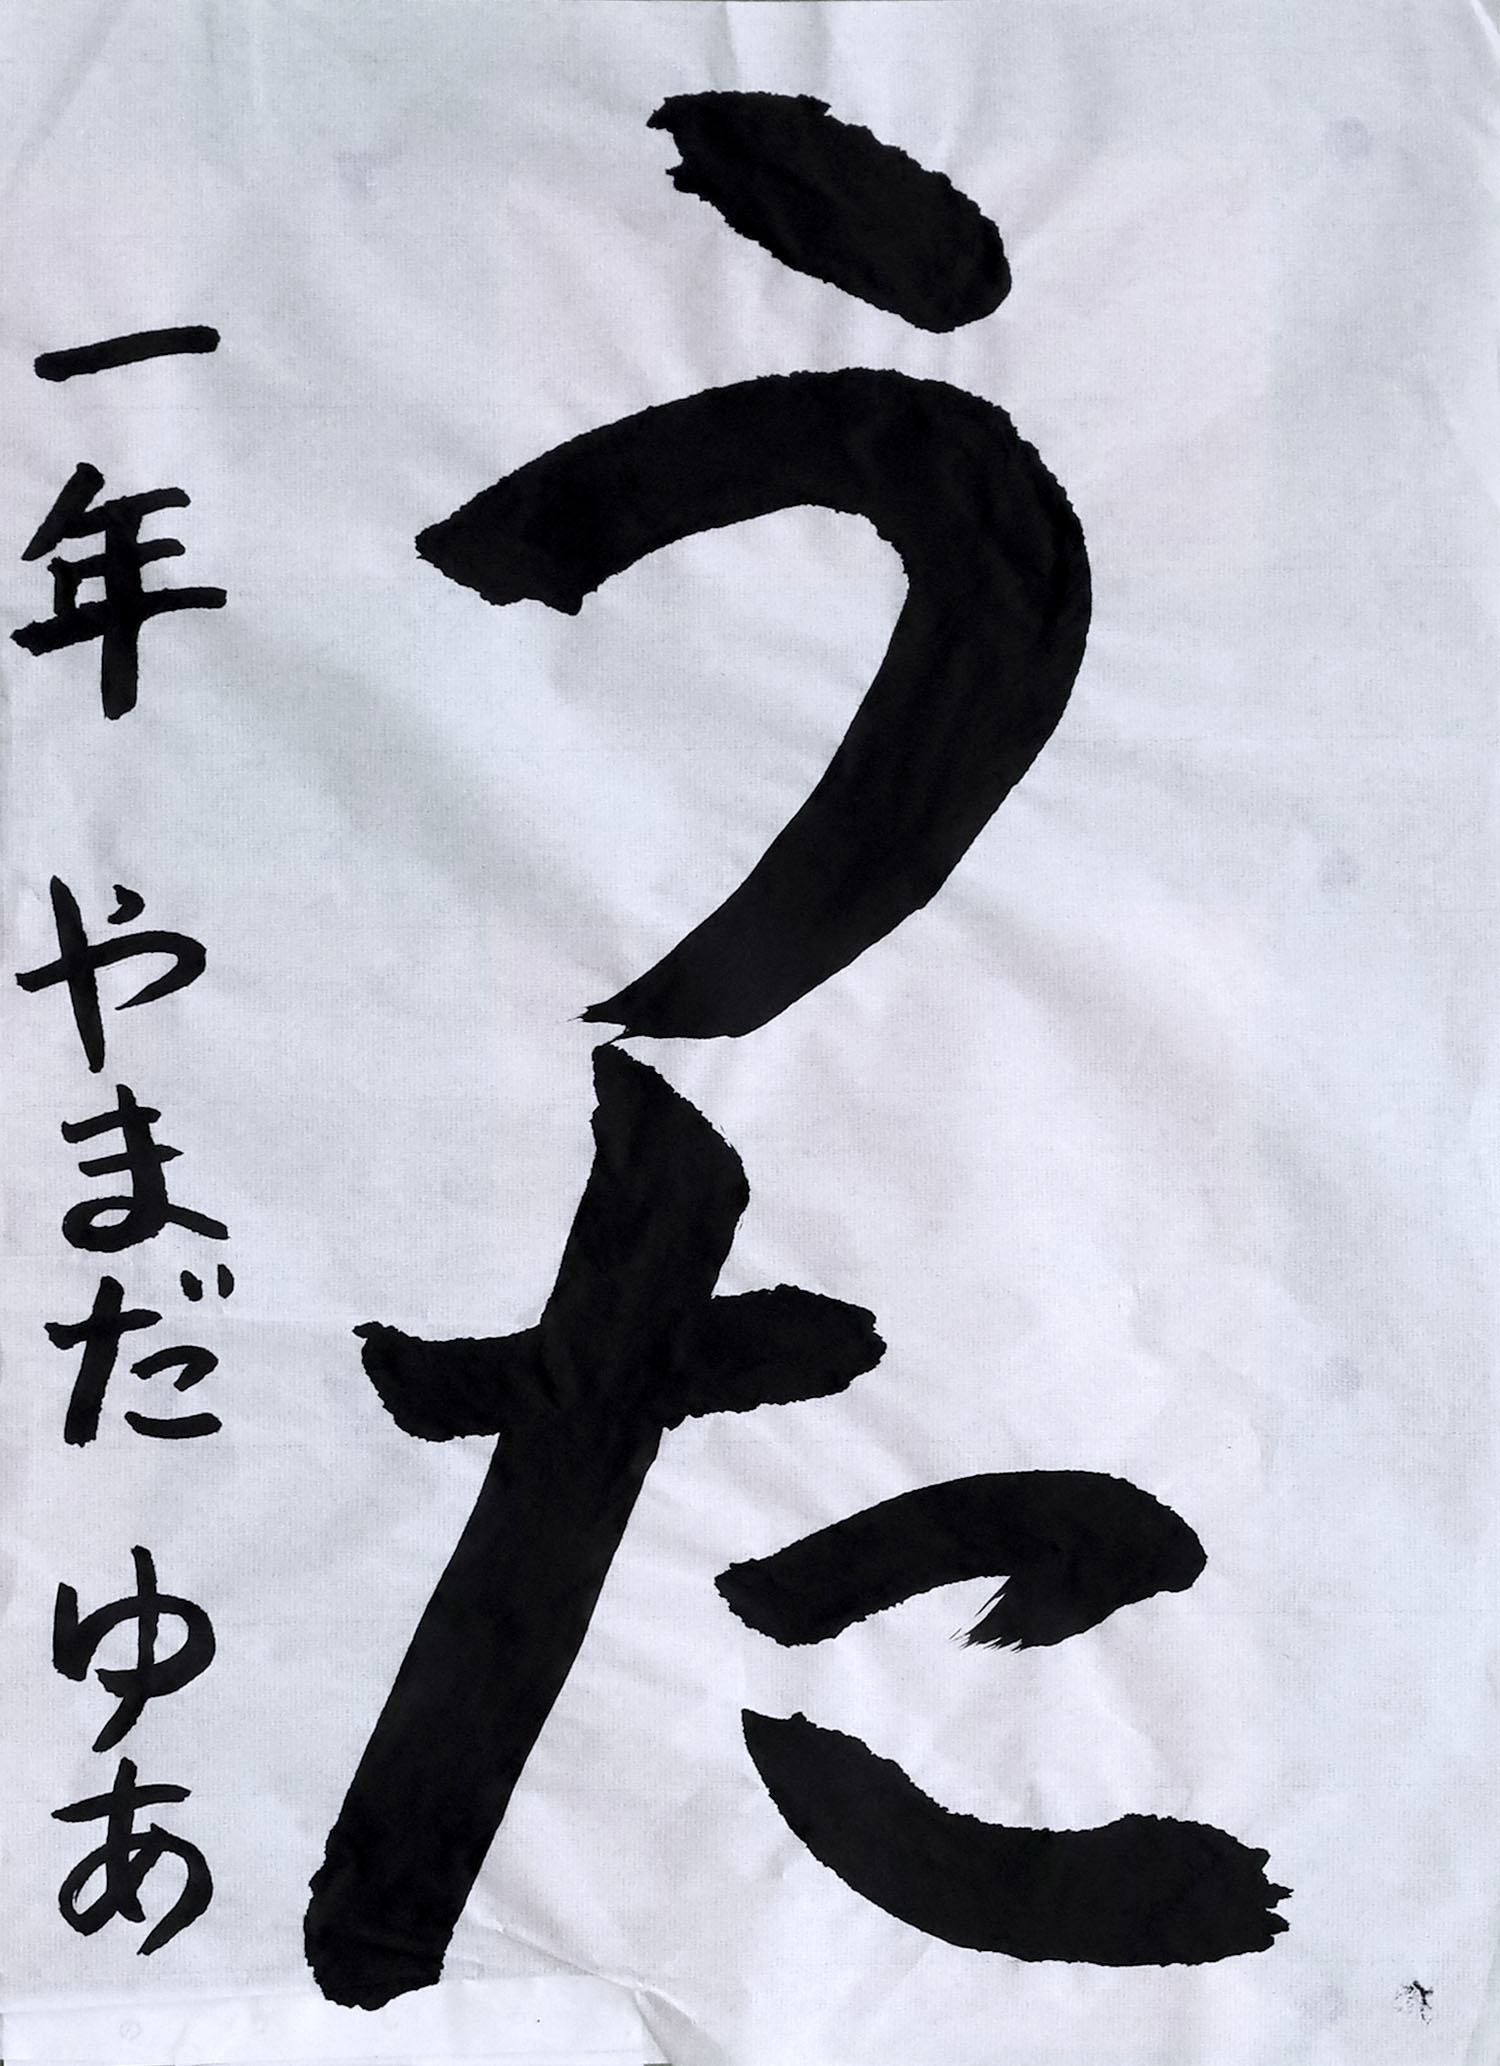 うた
一年 やまだ ゆあ